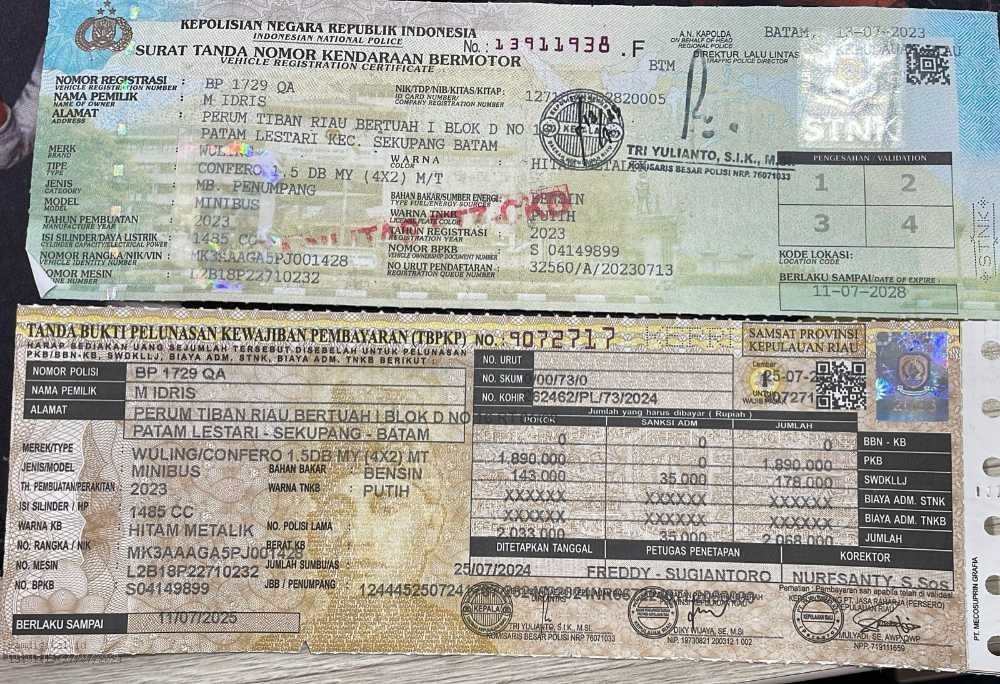 KEPOLISIAN NEGARA REPUBLIK INDONESIA
INDONESIAN NATIONAL POLICE
SURAT TANDA NOMOR KENDARAAN BERMOTOR
VEHICLE REGISTRATION CERTIFICATE
No.: 13911938 .F
BTM
A.N. KAPOLDA
ON BEHALF OF HEAD
REGIONAL POLICE
BATAM, 13-07-2023
DIREKTUR LALU LINTAS
TRAFFIC POLICE DIRECTOR
NOMOR REGISTRASI : BP 1729 QA
REGISTRATION NUMBER
NAMA PEMILIK : M IDRIS
NAME OF OWNER
NIK/TDP/NIB/KITAS/KITAP :
ID CARD NUMBER/
COMPANY REGISTRATION NUMBER
ALAMAT : PERUM TIBAN RIAU BERTUAH I BLOK D NO
ADDRESS
PATAM LESTARI KEC. SEKUPANG BATAM
MERK : WULING
BRAND
WARNA
COLOR
TYPE : CONFERO 1.5 DB MY (4X2) M/T
TYPE
JENIS : MB. PENUMPANG
CATEGORY
BAHAN BAKAR/SUMBER ENERGI : BENSIN
TYPE FUEL/ENERGY SOURCES
MODEL : MINIBUS
MODEL
WARNA TNKB : PUTIH
LICENSE PLATE COLOR
TAHUN PEMBUATAN : 2023
MANUFACTURE YEAR
TAHUN REGISTRASI : 2023
REGISTRATION YEAR
ISI SILINDER/DAYA LISTRIK : 1485 CC
CYLINDER CAPACITY/ELECTRICAL POWER
NOMOR BPKB : S 04149899
VEHICLE OWNERSHIP DOCUMENT NUMBER
NOMOR RANGKA/NIK/VIN : MK3AAAGA5PJ001428
VEHICLE IDENTITY NUMBER
NO URUT PENDAFTARAN : 32560/A/20230713
REGISTRATION QUEUE NUMBER
NOMOR MESIN : L2B18P22710232
TRI YULIANTO, S.I.K., M.Si
KOMISARIS BESAR POLISI NRP. 76071033
STNK
PENGESAHAN / VALIDATION
1 2
3 4
KODE LOKASI:
LOCATION CODE
BERLAKU SAMPAI/DATE OF EXPIRE :
11-07-2028
STNK
TANDA BUKTI PELUNASAN KEWAJIBAN PEMBAYARAN (TBPKP) NO.: 9072717
HARAP SEDIAKAN UANG SEJUMLAH TERSEBUT DISEBELAH UNTUK PELUNASAN
PKB/BBN-KB, SWDKLLJ, BIAYA ADM. STNK, BIAYA ADM. TNKB BERIKUT :
SAMSAT PROVINSI
KEPULAUAN RIAU
NOMOR POLISI BP 1729 QA
NAMA PEMILIK M IDRIS
ALAMAT PERUM TIBAN RIAU BERTUAH I BLOK D NO
PATAM LESTARI - SEKUPANG - BATAM
NO. URUT
NO. SKUM /00/73/0
NO. KOHIR 62462/PL/73/2024
Jumlah yang harus dibayar ( Rupiah )
POKOK SANKSI ADM JUMLAH
0 0 0 BBN - KB
1,890.000 0 1,890.000 PKB
143.000 35.000 178.000 SWDKLLJ
XXXXXX XXXXX XXXXXX BIAYA ADM. STNK
XXXXXX XXXXX XXXXXX BIAYA ADM. TNKB
2.033.000 35.000 2.068.000 JUMLAH
MEREK/TYPE : WULING/CONFERO 1.5DB MY (4X2) MT
JENIS/MODEL : MINIBUS BAHAN BAKAR : BENSIN
TH. PEMBUATAN/PERAKITAN : 2023 WARNA TNKB : PUTIH
ISI SILINDER / HP : 1485 CC
WARNA KB : HITAM METALIK NO. POLISI LAMA :
NO. RANGKA / NIK : MK3AAAGA5PJ001428 BERAT KB :
NO. MESIN : L2B18P22710232 JUMLAH SUMBU/AS :
NO. BPKB : S04149899 JBB / PENUMPANG :
DITETAPKAN TANGGAL PETUGAS PENETAPAN KOREKTOR
25/07/2024 FREDDY - SUGIANTORO NURFSANTY, S.Sos
BERLAKU SAMPAI 11/07/2025
TRI YULIANTO, S.I.K, M.Si
KOMISARIS BESAR POLISI NRP 76071033
DIKY WIJAYA, SE, M.Si
PT. JASA RAHARJA (PERSERO)
KEPULAUAN RIAU
MULYADI, SE, AWP, CWP
NPP: 719111659
PT. MECOSUPRIN GRAFIA